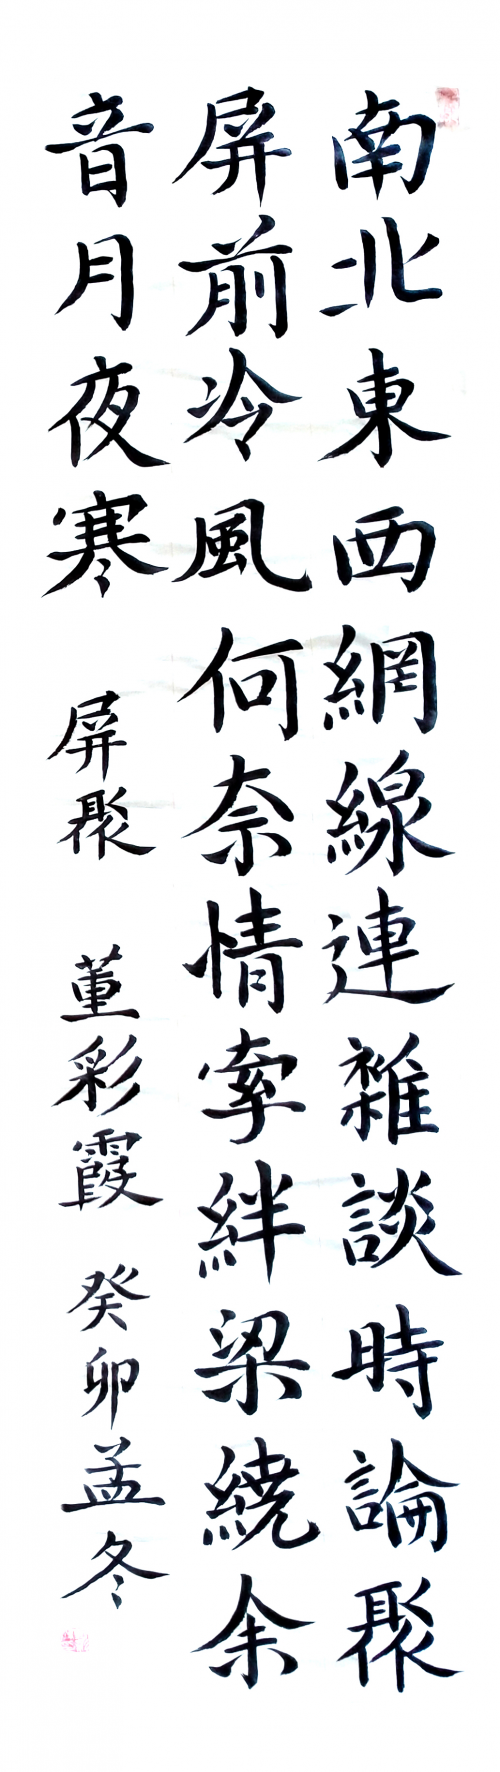 南北東西網線連雜談時論聚
屏前冷風何奈情牽絆梁繞余
音月夜寒 屏聚 董彩霞 癸卯孟冬